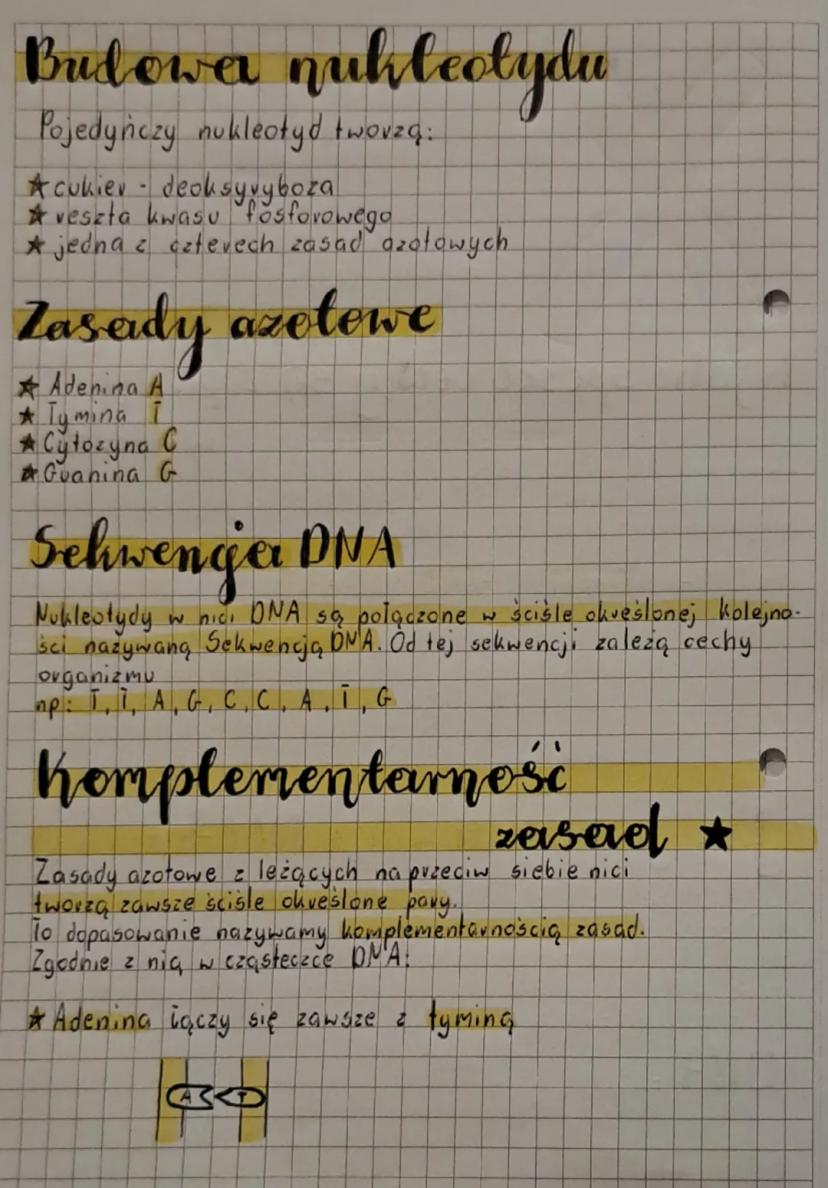 Budowa nukleotydu
Pojedyńczy nukleotyd tworzą:
★ cukier - deoksyryboza
★ reszta kwasu fosforowego
★ jedna z czterech zasad azotowych
Zasady azotowe
★ Adenina A
★ Tymina T
★ Cytozyna C
★ Guanina G
Sekwencja DNA
Nukleotydy w nici DNA są połączone w ściśle określonej kolejno-
ści nazywaną Sekwencją DNA. Od tej sekwencji zależą cechy
organizmu
np: T, T, A, G, C, C, A, T, G
Komplementarność
zasad ★
Zasady azotowe z leżących naprzeciw siebie nici
tworzą zawsze ściśle określone pary.
To dopasowanie nazywamy komplementarnością zasad.
Zgodnie z nią w cząsteczce DNA:
★ Adenina łączy się zawsze z tyminą
A T